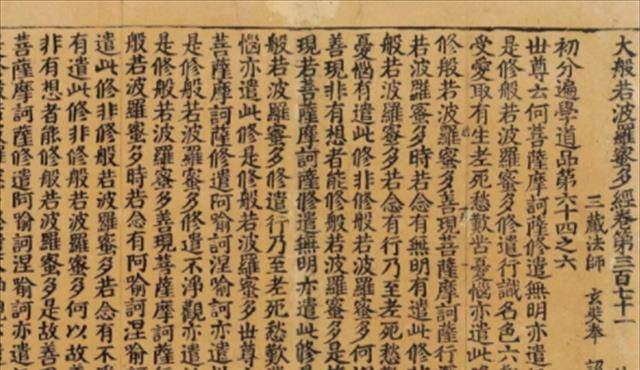 大般若波羅蜜多經卷第三百七十一
三藏法師 玄奘奉 詔
初分遍學道品第六十四之六
世尊云何菩薩摩訶薩修遣無明亦遣
是修般若波羅蜜多修遣行識名色六
受愛取有生老死愁歎苦憂惱亦遣此
修般若波羅蜜多善現菩薩摩訶薩行
若波羅蜜多時若念有無明有遣此修
般若波羅蜜多若念有行乃至老死愁歎
憂惱有遣此修非修般若波羅蜜多何
善現非有想者能修般若波羅蜜多是
現若菩薩摩訶薩修遣無明亦遣此修是
般若波羅蜜多修遣行乃至老死愁歎
惱亦遣此修是修般若波羅蜜多世尊
菩薩摩訶薩修遣阿喻訶涅喻訶亦遣
是修般若波羅蜜多修遣不淨觀亦遣
是修般若波羅蜜多善現菩薩摩訶薩行
般若波羅蜜多時若念有阿喻訶涅喻訶
遣此修非修般若波羅蜜多若念有不
有遣此修非修般若波羅蜜多何以故善
非有想者能修般若波羅蜜多是故善
菩薩摩訶薩修遣阿喻訶涅喻訶亦遣